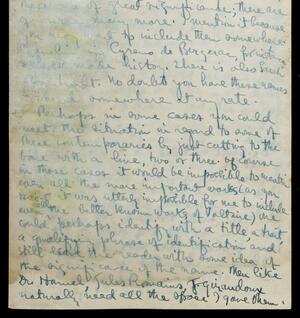 of great significance, there are
many more. I mention it because
to include them somewhere.
Cyrano de Bergerac, for instance
made history. There is also Sarah
No doubt you have these names
somewhere at any rate.
Perhaps in some cases you could
meet the situation in regard to some of
these contemporaries by just cutting to the
bone with a line, two or three. Of course
in those cases it would be impossible to mention
even all the more important works (as you
it was utterly impossible for me to include
even the better known works of Voltaire) we
could perhaps identify with a title, a trait,
a qualifying phrase of identification, and
still leave the reader with some idea of
the significance of the name. Men like
Du Hamel, Jules Romains, J. Giraudoux
naturally need all the space I gave them.